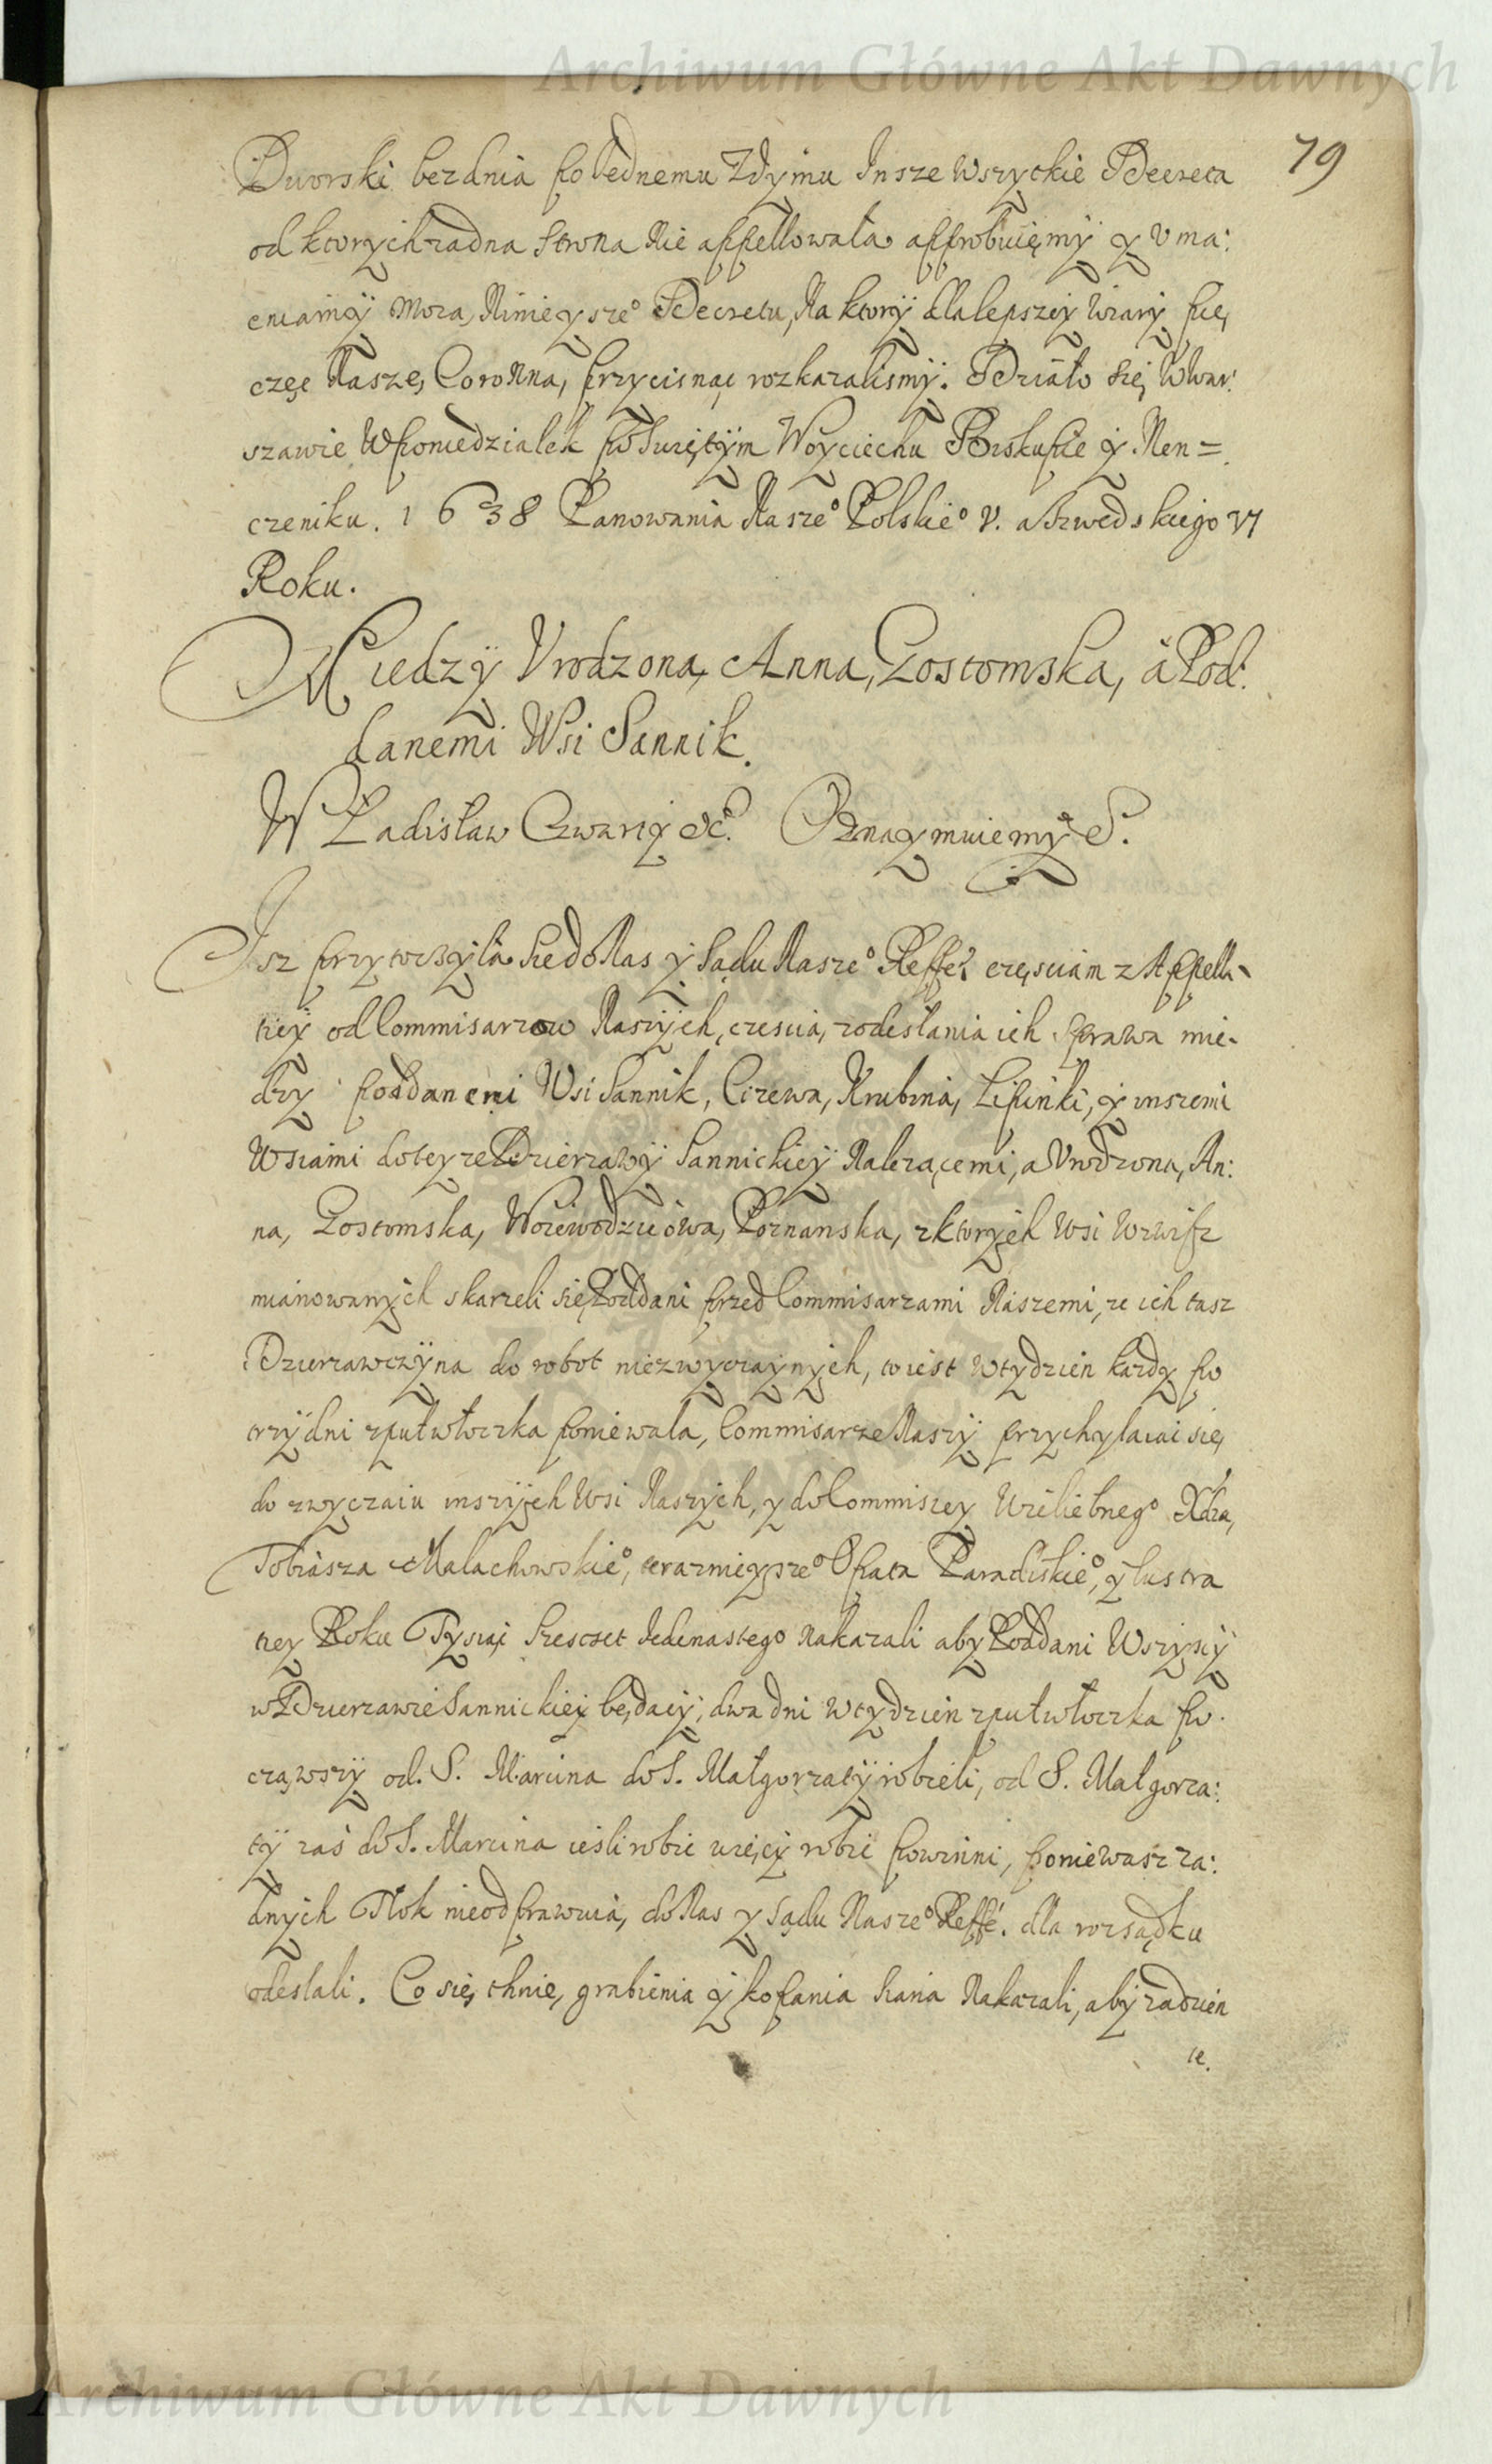 Archiwum Główne Akt Dawnych
79
Dworski bez dnia po iednemu z dymu Insze wszytkie Decreta
od ktorych zadna strona Nie appellowała approbuięmy y vma:
cniamy moca Ninieyszeº Decretu, Na ktory dla lepszey wiary pie,
częc Nasze, Coronna, przycisnąc rozkazalismy. Działo się, w War:
szawie w poniedzialek po Swiętym Woyciechu Biskupie y Men=
czeniku. 1638 Panowania Naszeº Polskieº V. a Szwedskiego VI
Roku.
Miedzy Vrodzona, Anna, Gostomska, á Pod:
danemi Wsi Sannik.
Władisław Czwarty &c. Oznaymuiemy S.
Isz przytoczyła sie do Nas y Sądu Naszeº Reffe: częsciam z Appella
tiey od Commisarzow Naszych, czescia, z odesłania ich sprawa mie-
dzy poddanemi Wsi Sannik, Czewa, Krubina, Lipinki, y inszemi
Wsiami do teyze Dzierzawy Sannickiey Należącemi, a Vrodzona, An:
na, Gostomska, Woiewodzicowa, Poznanska, z ktorych Wsi wzwysz
mianowanych skarzeli się Poddani przed Commisarzami Naszemi, ze ich tasz
Dzierzawczyna do robot niezwyczaynych, to iest w tydzien kazdy po
trzy dni z puł włoczka poniewala, Commisarze Naszy przychylaiac się,
do zwyczaiu inszych Wsi Naszych, y do Commissiey Wieliebnegº Xdza,
Tobiasza Malachowskieº, teraznieyszeº Opata Paradiskieº, y lustra
tiey Roku Tysiąc Szescset Iedenastego nakazali aby Poddani Wszyscy
w Dzierzawie Sannickiey będący, dwa dni w tydzien z puł włoczka po
cząwszy od S. Marcina do S. Małgorzaty robieli, od S. Malgorza:
ty zaś do S. Marcina iesli robic więcy robic powinni, poniewasz za:
dnych Tłok nieodprawuią, do Nas y Sądu Naszeº Reffe. dla rozsądku
odeslali. Co się, tknie, grabienia y kopania siana Nakazali, aby za dzien
ie.
Archiwum Główne Akt Dawnych